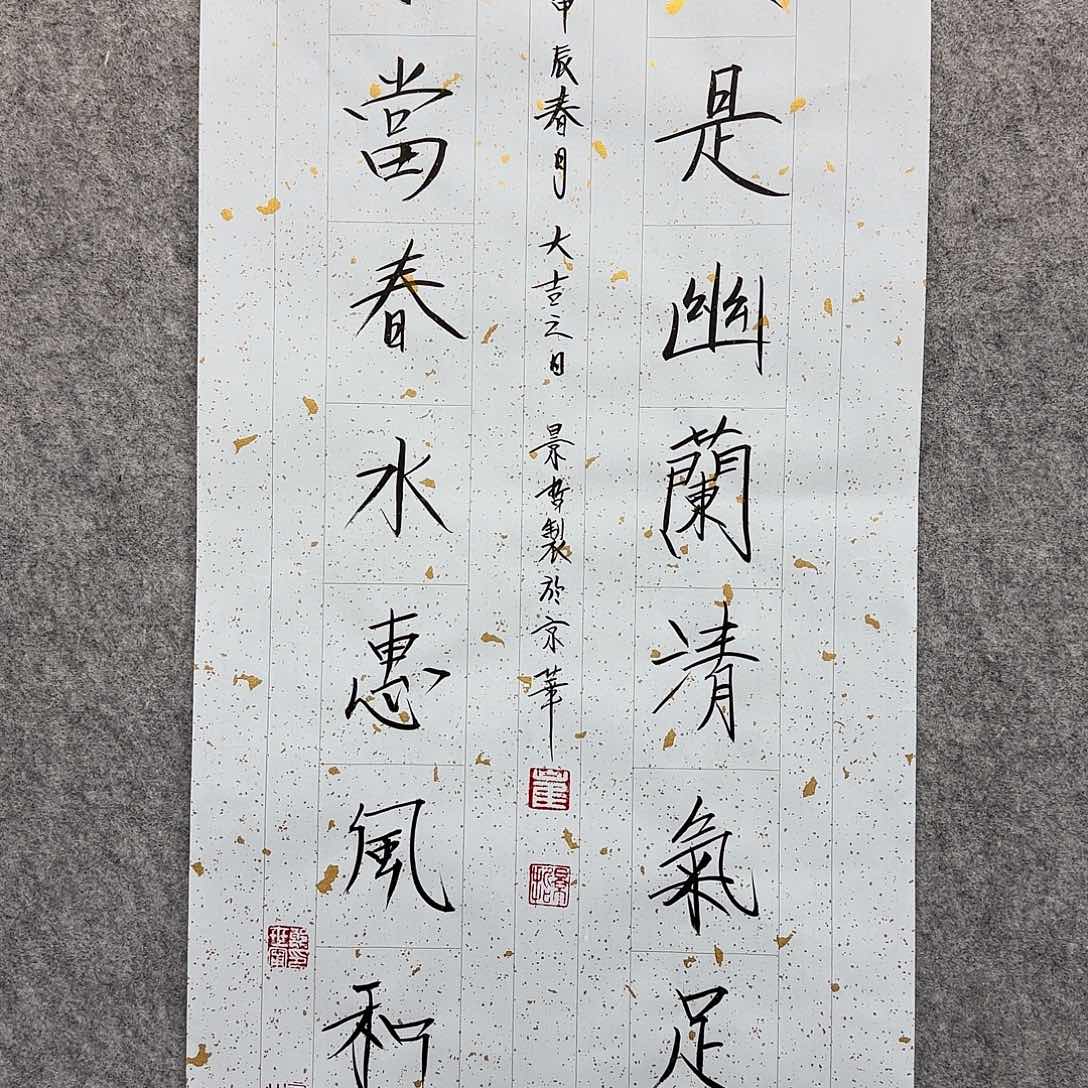 是幽蘭清氣足
甲辰春月 大吉之日 景哲製於京華
當春水惠風和
董
景哲